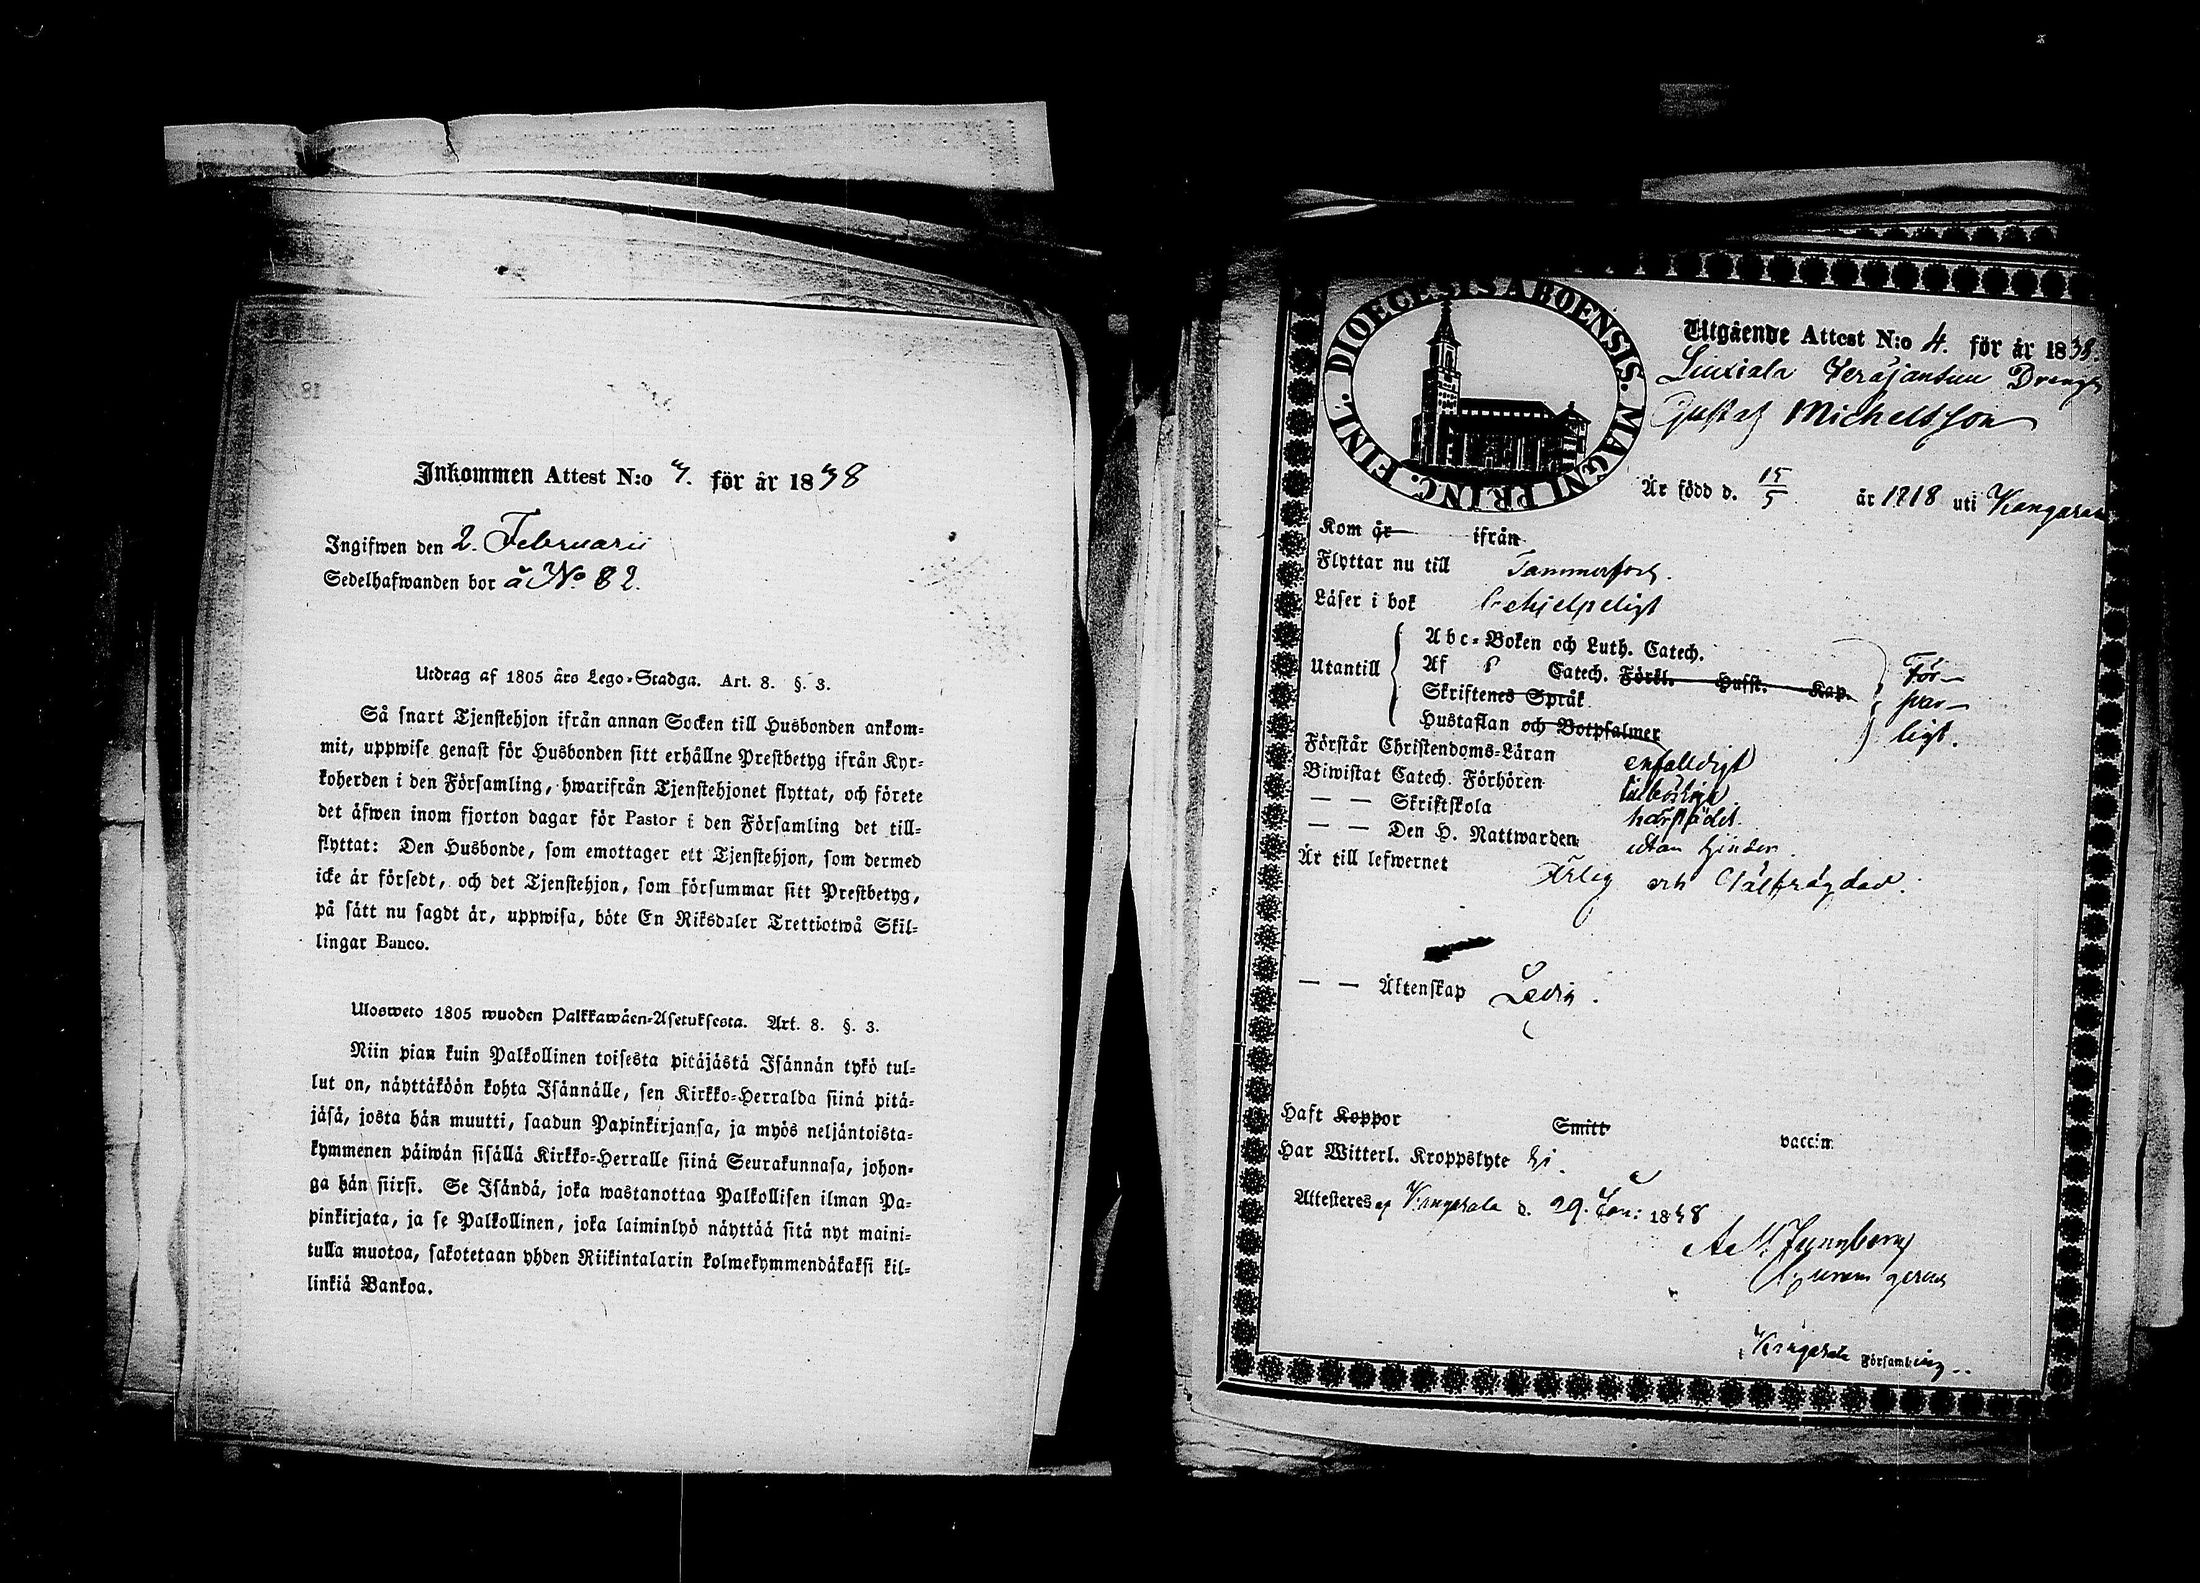 Inkommen Attest N:o 7. för år 1838
Ingifwen den 2. Februarii
Sedelhafwanden bor å No 82.
Utdrag af 1805 års Lego-Stadga. Art. 8. §. 3.
Så snart Tjenstehjon ifrån annan Socken till Husbonden ankom-
mit, uppwise genast för Husbonden sitt erhållne Prestbetyg ifrån Kyr-
koherden i den Församling, hwarifrån Tjenstehjonet flyttat, och förete
det äfwen inom fjorton dagar för Pastor i den Församling det till-
flyttat: Den Husbonde, som emottager ett Tjenstehjon, som dermed
icke är försedt, och det Tjenstehjon, som försummar sitt Prestbetyg,
på sätt nu sagdt är, uppwisa, böte En Riksdaler Trettiotwå Skil-
lingar Banco.
Ulosweto 1805 wuoden Palkkawäen-Asetuksesta. Art. 8. §. 3.
Niin pian kuin Palkollinen toisesta pitäjästä Isännän tykö tul-
lut on, näyttäköön kohta Isännälle, sen Kirkko-Herralda siinä pitä-
jäsä, josta hän muutti, saadun Papinkirjansa, ja myös neljäntoista-
kymmenen päiwän sisällä Kirkko-Herralle siinä Seurakunnasa, johon-
ga hän siirsi. Se Isändä, joka wastanottaa Palkollisen ilman Pa-
pinkirjata, ja se Palkollinen, joka laiminlyö näyttää sitä nyt maini-
tulla muotoa, sakotetaan yhden Riikintalarin kolmekymmendäkaksi kil-
linkiä Bankoa.
DIOECESIS ABOENSIS. MAGNI PRINC. FINL.
Utgående Attest N:o 4. för år 1838.
Liuxiala Drengen
Gustaf Michelsson
Är född d. 15/5 år 1818 uti Kangasala
Kom år ifrån
Flyttar nu till Tammerfors.
Läser i bok behjelpeligt
Utantill
Abc-Boken och Luth. Catech.
Af Catech. Förkl. Husst. Kap.
Skriftenes Språk
Hustaflan och Botpsalmer
För-
swar-
ligt.
Förstår Christendoms-Läran enfalldigt
Biwistat Catech. Förhören
— — Skriftskola härstädes.
— — Den H. Nattwarden utan hinder.
Är till lefwernet Ärlig och Välfrägdad.
— — Äktenskap Ledig.
Haft Koppor Smitt vaccin
Har Witterl. Kroppslyte Ej.
Attesteras af Kangasala d. 29. Jan: 1838
Kangasala Församling.